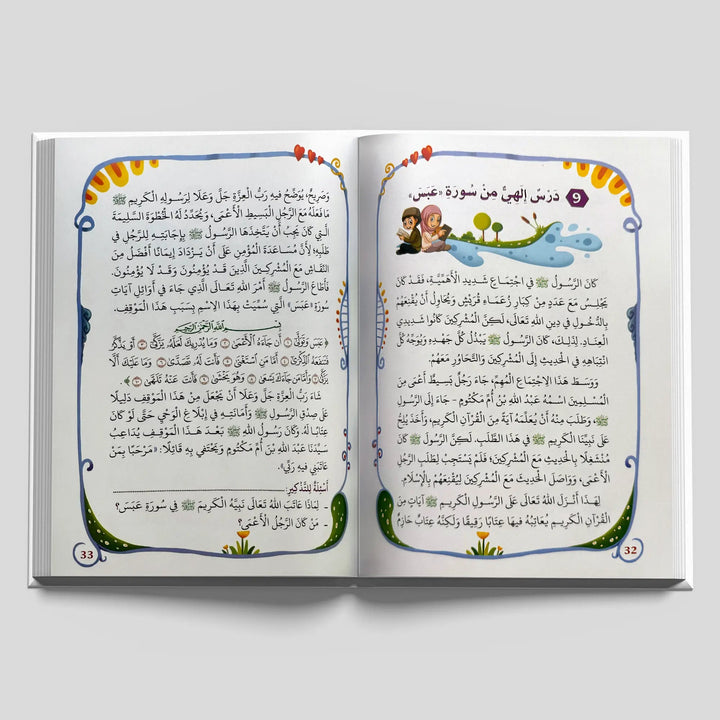 9 دَرْسٌ إِلهِيٌّ مِنْ سُورَةِ «عَبَسَ»
كَانَ الرَّسُولُ ﷺ فِي اجْتِمَاعٍ شَدِيدِ الْأَهَمِّيَّةِ، فَقَدْ كَانَ
يَجْلِسُ مَعَ عَدَدٍ مِنْ كِبَارِ زُعَمَاءِ قُرَيْشٍ وَيُحَاوِلُ أَنْ يُقْنِعَهُمْ
بِالدُّخُولِ فِي دِينِ اللهِ تَعَالَى، لَكِنَّ الْمُشْرِكِينَ كَانُوا شَدِيدِي
الْعِنَادِ. لِذَلِكَ، كَانَ الرَّسُولُ ﷺ يَبْذُلُ كُلَّ جَهْدِهِ وَيُوَجِّهُ كُلَّ
انْتِبَاهِهِ فِي الْحَدِيثِ إِلَى الْمُشْرِكِينَ وَالتَّحَاوُرِ مَعَهُمْ.
وَوَسَطَ هَذَا الِاجْتِمَاعِ الْمُهِمِّ، جَاءَ رَجُلٌ بَسِيطٌ أَعْمَى مِنَ
الْمُسْلِمِينَ اسْمُهُ عَبْدُ اللهِ بْنُ أُمِّ مَكْتُومٍ - جَاءَ إِلَى الرَّسُولِ
ﷺ، وَطَلَبَ مِنْهُ أَنْ يُعَلِّمَهُ آيَةً مِنَ الْقُرْآنِ الْكَرِيمِ، وَأَخَذَ يُلِحُّ
عَلَى نَبِيِّنَا الْكَرِيمِ ﷺ فِي هَذَا الطَّلَبِ. لَكِنَّ الرَّسُولَ ﷺ كَانَ
مُنْشَغِلًا بِالْحَدِيثِ مَعَ الْمُشْرِكِينَ؛ فَلَمْ يَسْتَجِبْ لِطَلَبِ الرَّجُلِ
الْأَعْمَى، وَوَاصَلَ الْحَدِيثَ مَعَ الْمُشْرِكِينَ لِيُقْنِعَهُمْ بِالْإِسْلَامِ.
لِهَذَا أَنْزَلَ اللهُ تَعَالَى عَلَى الرَّسُولِ الْكَرِيمِ ﷺ آيَاتٍ مِنَ
الْقُرْآنِ الْكَرِيمِ يُعَاتِبُهُ فِيهَا عِتَابًا رَقِيقًا وَلَكِنَّهُ عِتَابٌ حَازِمٌ
32
وَصَرِيحٌ، يُوَضِّحُ فِيهِ رَبُّ الْعِزَّةِ جَلَّ وَعَلَا لِرَسُولِهِ الْكَرِيمِ ﷺ
مَا فَعَلَهُ مَعَ الرَّجُلِ الْبَسِيطِ الْأَعْمَى، وَيُحَدِّدُ لَهُ الْخُطْوَةَ السَّلِيمَةَ
الَّتِي كَانَ يَجِبُ أَنْ يَتَّخِذَهَا الرَّسُولُ ﷺ بِإِجَابَتِهِ لِلرَّجُلِ فِي
طَلَبِهِ؛ لِأَنَّ مُسَاعَدَةَ الْمُؤْمِنِ عَلَى أَنْ يَزْدَادَ إِيمَانًا أَفْضَلُ مِنَ
النِّقَاشِ مَعَ الْمُشْرِكِينَ الَّذِينَ قَدْ يُؤْمِنُونَ وَقَدْ لَا يُؤْمِنُونَ.
فَأَطَاعَ الرَّسُولُ ﷺ أَمْرَ اللهِ تَعَالَى الَّذِي جَاءَ فِي أَوَائِلِ آيَاتِ
سُورَةِ «عَبَسَ» الَّتِي سُمِّيَتْ بِهَذَا الِاسْمِ بِسَبَبِ هَذَا الْمَوْقِفِ.
بِسْمِ اللهِ الرَّحْمَنِ الرَّحِيمِ
﴿ عَبَسَ وَتَوَلَّىٰ ۝١ أَن جَاءَهُ الْأَعْمَىٰ ۝٢ وَمَا يُدْرِيكَ لَعَلَّهُ يَزَّكَّىٰ ۝٣ أَوْ يَذَّكَّرُ
فَتَنفَعَهُ الذِّكْرَىٰ ۝٤ أَمَّا مَنِ اسْتَغْنَىٰ ۝٥ فَأَنتَ لَهُ تَصَدَّىٰ ۝٦ وَمَا عَلَيْكَ أَلَّا
يَزَّكَّىٰ ۝٧ وَأَمَّا مَن جَاءَكَ يَسْعَىٰ ۝٨ وَهُوَ يَخْشَىٰ ۝٩ فَأَنتَ عَنْهُ تَلَهَّىٰ ۝١٠ ﴾.
شَاءَ رَبُّ الْعِزَّةِ جَلَّ وَعَلَا أَنْ يَجْعَلَ مِنْ هَذَا الْمَوْقِفِ دَلِيلًا
عَلَى صِدْقِ الرَّسُولِ ﷺ وَأَمَانَتِهِ فِي إِبْلَاغِ الْوَحْيِ حَتَّى لَوْ كَانَ
عِتَابًا لَهُ. وَكَانَ رَسُولُ اللهِ ﷺ بَعْدَ هَذَا الْمَوْقِفِ يُدَاعِبُ
سَيِّدَنَا عَبْدَ اللهِ بْنَ أُمِّ مَكْتُومٍ وَيَحْتَفِي بِهِ قَائِلًا: «مَرْحَبًا بِمَنْ
عَاتَبَنِي فِيهِ رَبِّي».
أَسْئِلَةٌ لِلتَّذْكِيرِ:
- لِمَاذَا عَاتَبَ اللهُ تَعَالَى نَبِيَّهُ الْكَرِيمَ ﷺ فِي سُورَةِ عَبَسَ؟
- مَنْ كَانَ الرَّجُلُ الْأَعْمَى؟
33